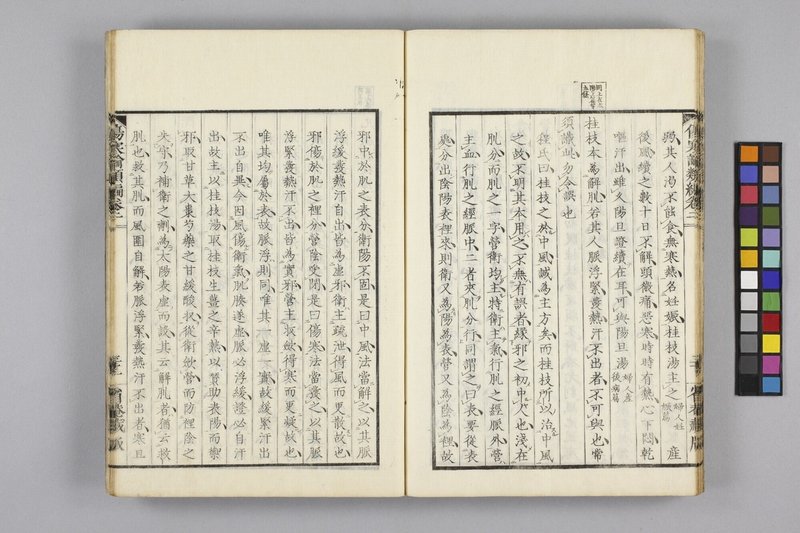 弱其人渴不能食無寒熱名妊娠桂枝湯主之婦人妊娠篇 產
後風續之數十日不解頭微痛惡寒時時有熱心下悶乾
嘔汗出雖久陽旦證續在耳可與陽旦湯婦人產後病篇
桂枝本為解肌若其人脈浮緊發熱汗不出者不可與也常
須識此勿令誤也
程氏曰桂枝之於中風誠為主方矣而桂枝所以治中風
之故不明其本用之不無有誤者緣邪之初中人也淺在
肌分而肌之一字營衛均主特衛主氣行肌之經脈外營
主血行肌之經脈中二者夾肌分行同謂之曰表要從表
處分出陰陽表裡來則衛又為陽為表營又為陰為裡故
邪中於肌之表分衛陽不固是曰中風法當解之以其脈
浮緩發熱汗自出皆為虛邪衛主疏泄得風而更散故也
邪傷於肌之裡分營陰受閉是曰傷寒法當發之以其脈
浮緊發熱汗不出皆為實邪營主收斂得寒而更凝故也
唯其均屬於表故脈浮則同唯其一虛一實故緩緊汗出
不出自異今因風傷衛氣肌腠遂虛脈必浮緩證必自汗
出故主以桂枝湯取桂枝生薑之辛熱以贊助表陽而禦
邪取甘草大棗芍藥之甘緩酸收從衛斂營而防裡陰之
失守乃補衛之劑為太陽表虛而設其云解肌者猶云救
肌也救其肌而風圍自解若脈浮緊發熱汗不出者寒且
傷寒論類編卷三